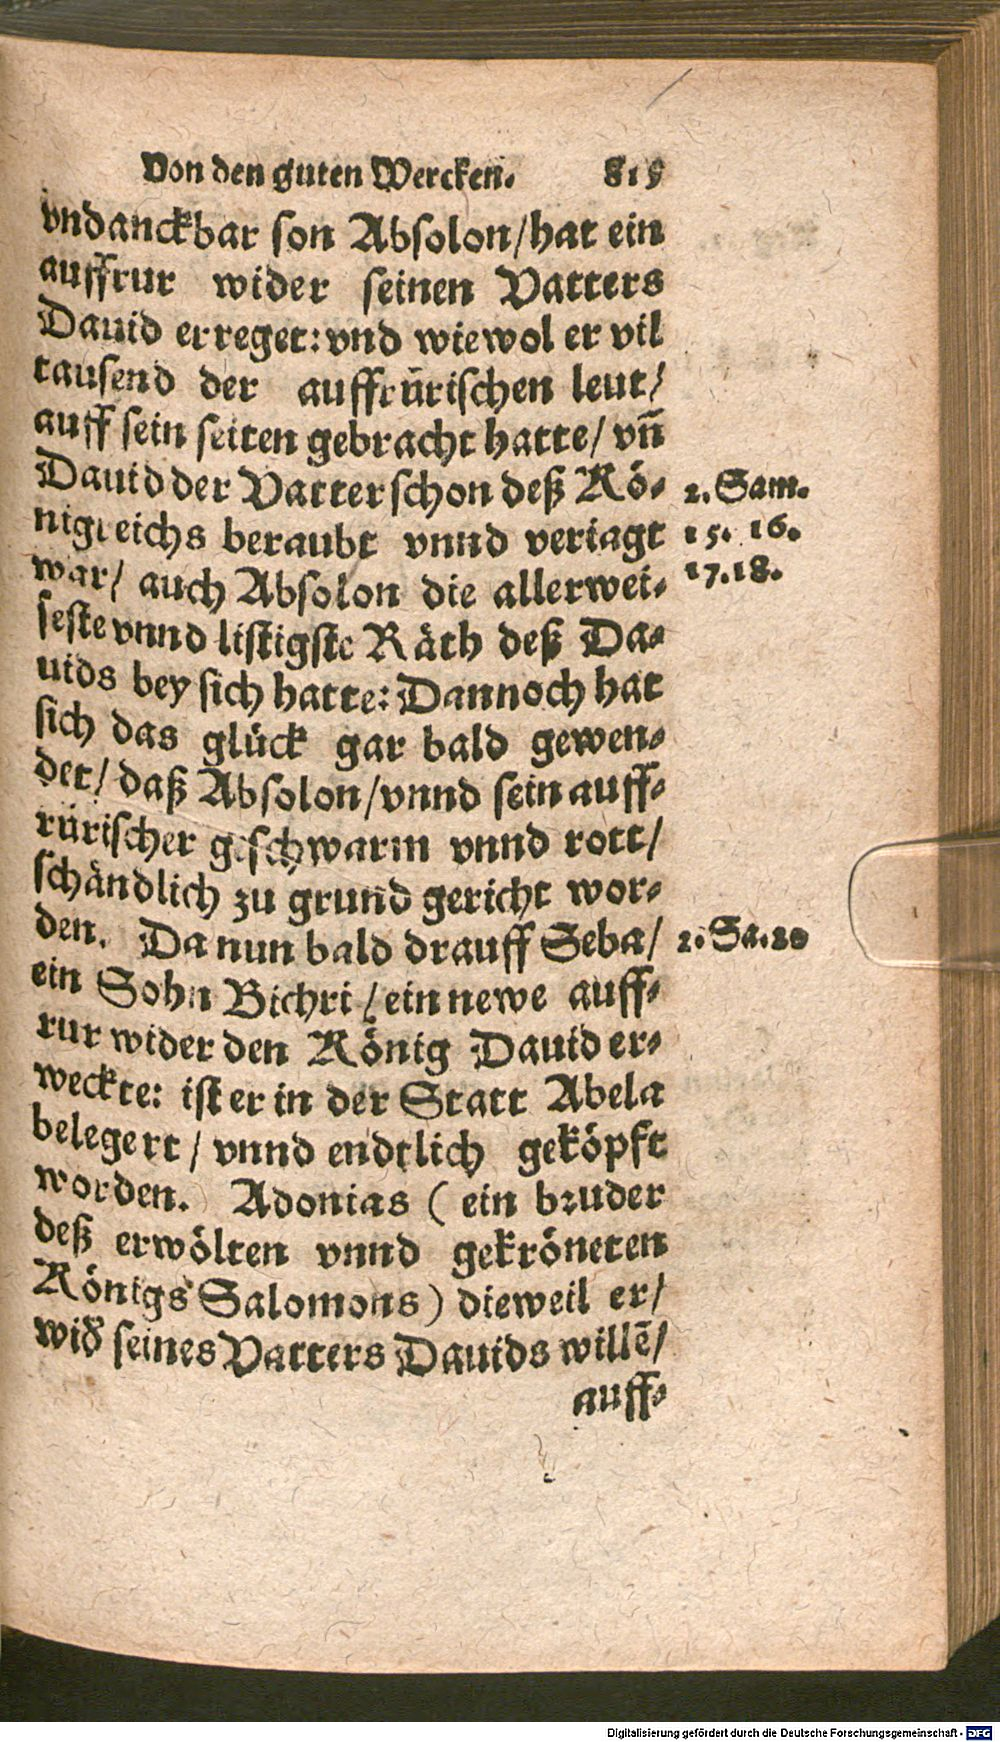 Von den guten Wercken. 815
vndanckbar son Absolon/hat ein
auffrur wider seinen Vatters
Dauid erreget: vnd wiewol er vil
tausend der auffrürischen leut/
auff sein seiten gebracht hatte/ vñ
Dauid der Vatter schon deß Kö-
nigreichs beraubt vnnd veriagt
war/ auch Absolon die allerwei-
seste vnnd listigste Räth deß Da-
uids bey sich hatte: Dannoch hat
sich das glück gar bald gewen-
det/ daß Absolon/vnnd sein auff-
rürischer geschwarm vnnd rott/
schändlich zu grund gericht wor-
den. Da nun bald drauff Seba/
ein Sohn Bichri/ ein newe auff-
rur wider den König Dauid er-
weckte: ist er in der Statt Abela
belegert/ vnnd endtlich geköpft
worden. Adonias (ein bruder
deß erwölten vnnd gekröneten
Königs Salomons) dieweil er/
wid̃ seines Vatters Dauids willẽ/
auff-
2. Sam.
15. 16.
17. 18.
2. Sa. 20
Digitalisierung gefördert durch die Deutsche Forschungsgemeinschaft - DFG